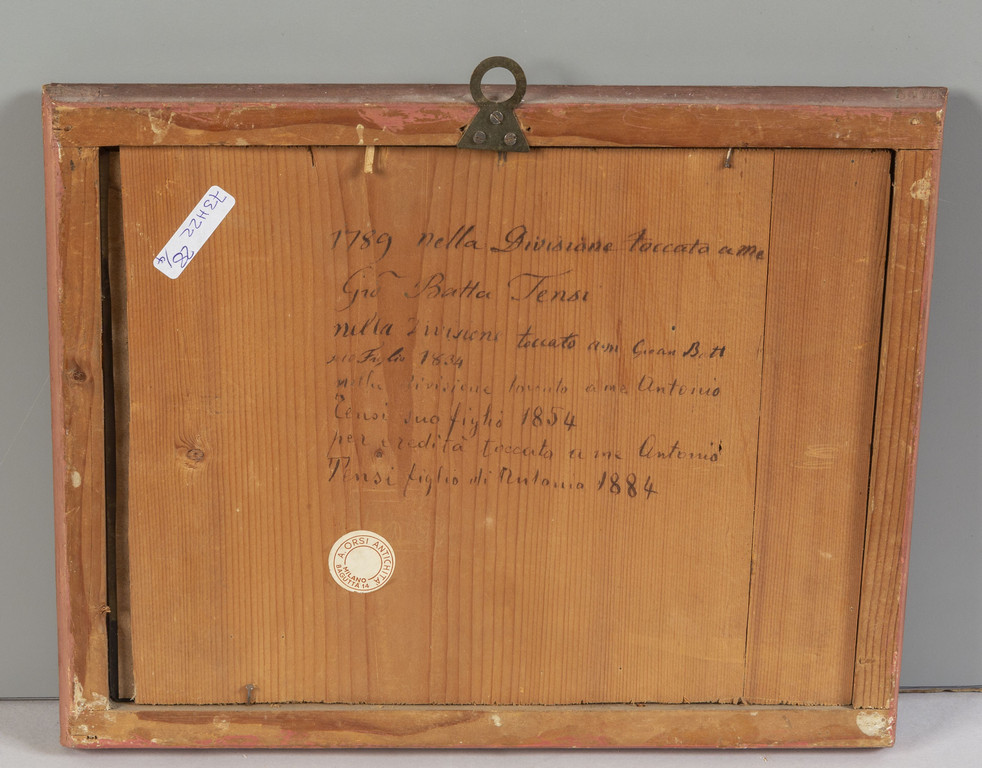 1789 nella Divisione toccato a me
Gio Batta Tensi
nella Divisione toccato a me Giovan Batt
suo Figlio 1834
nella divisione a me Antonio
Tensi suo figlio 1854
per eredità toccato a me Antonio
Tensi figlio di 1884
73H22 28/4
A. ORSI ANTICHITÀ
MILANO
BAGUTTA 14